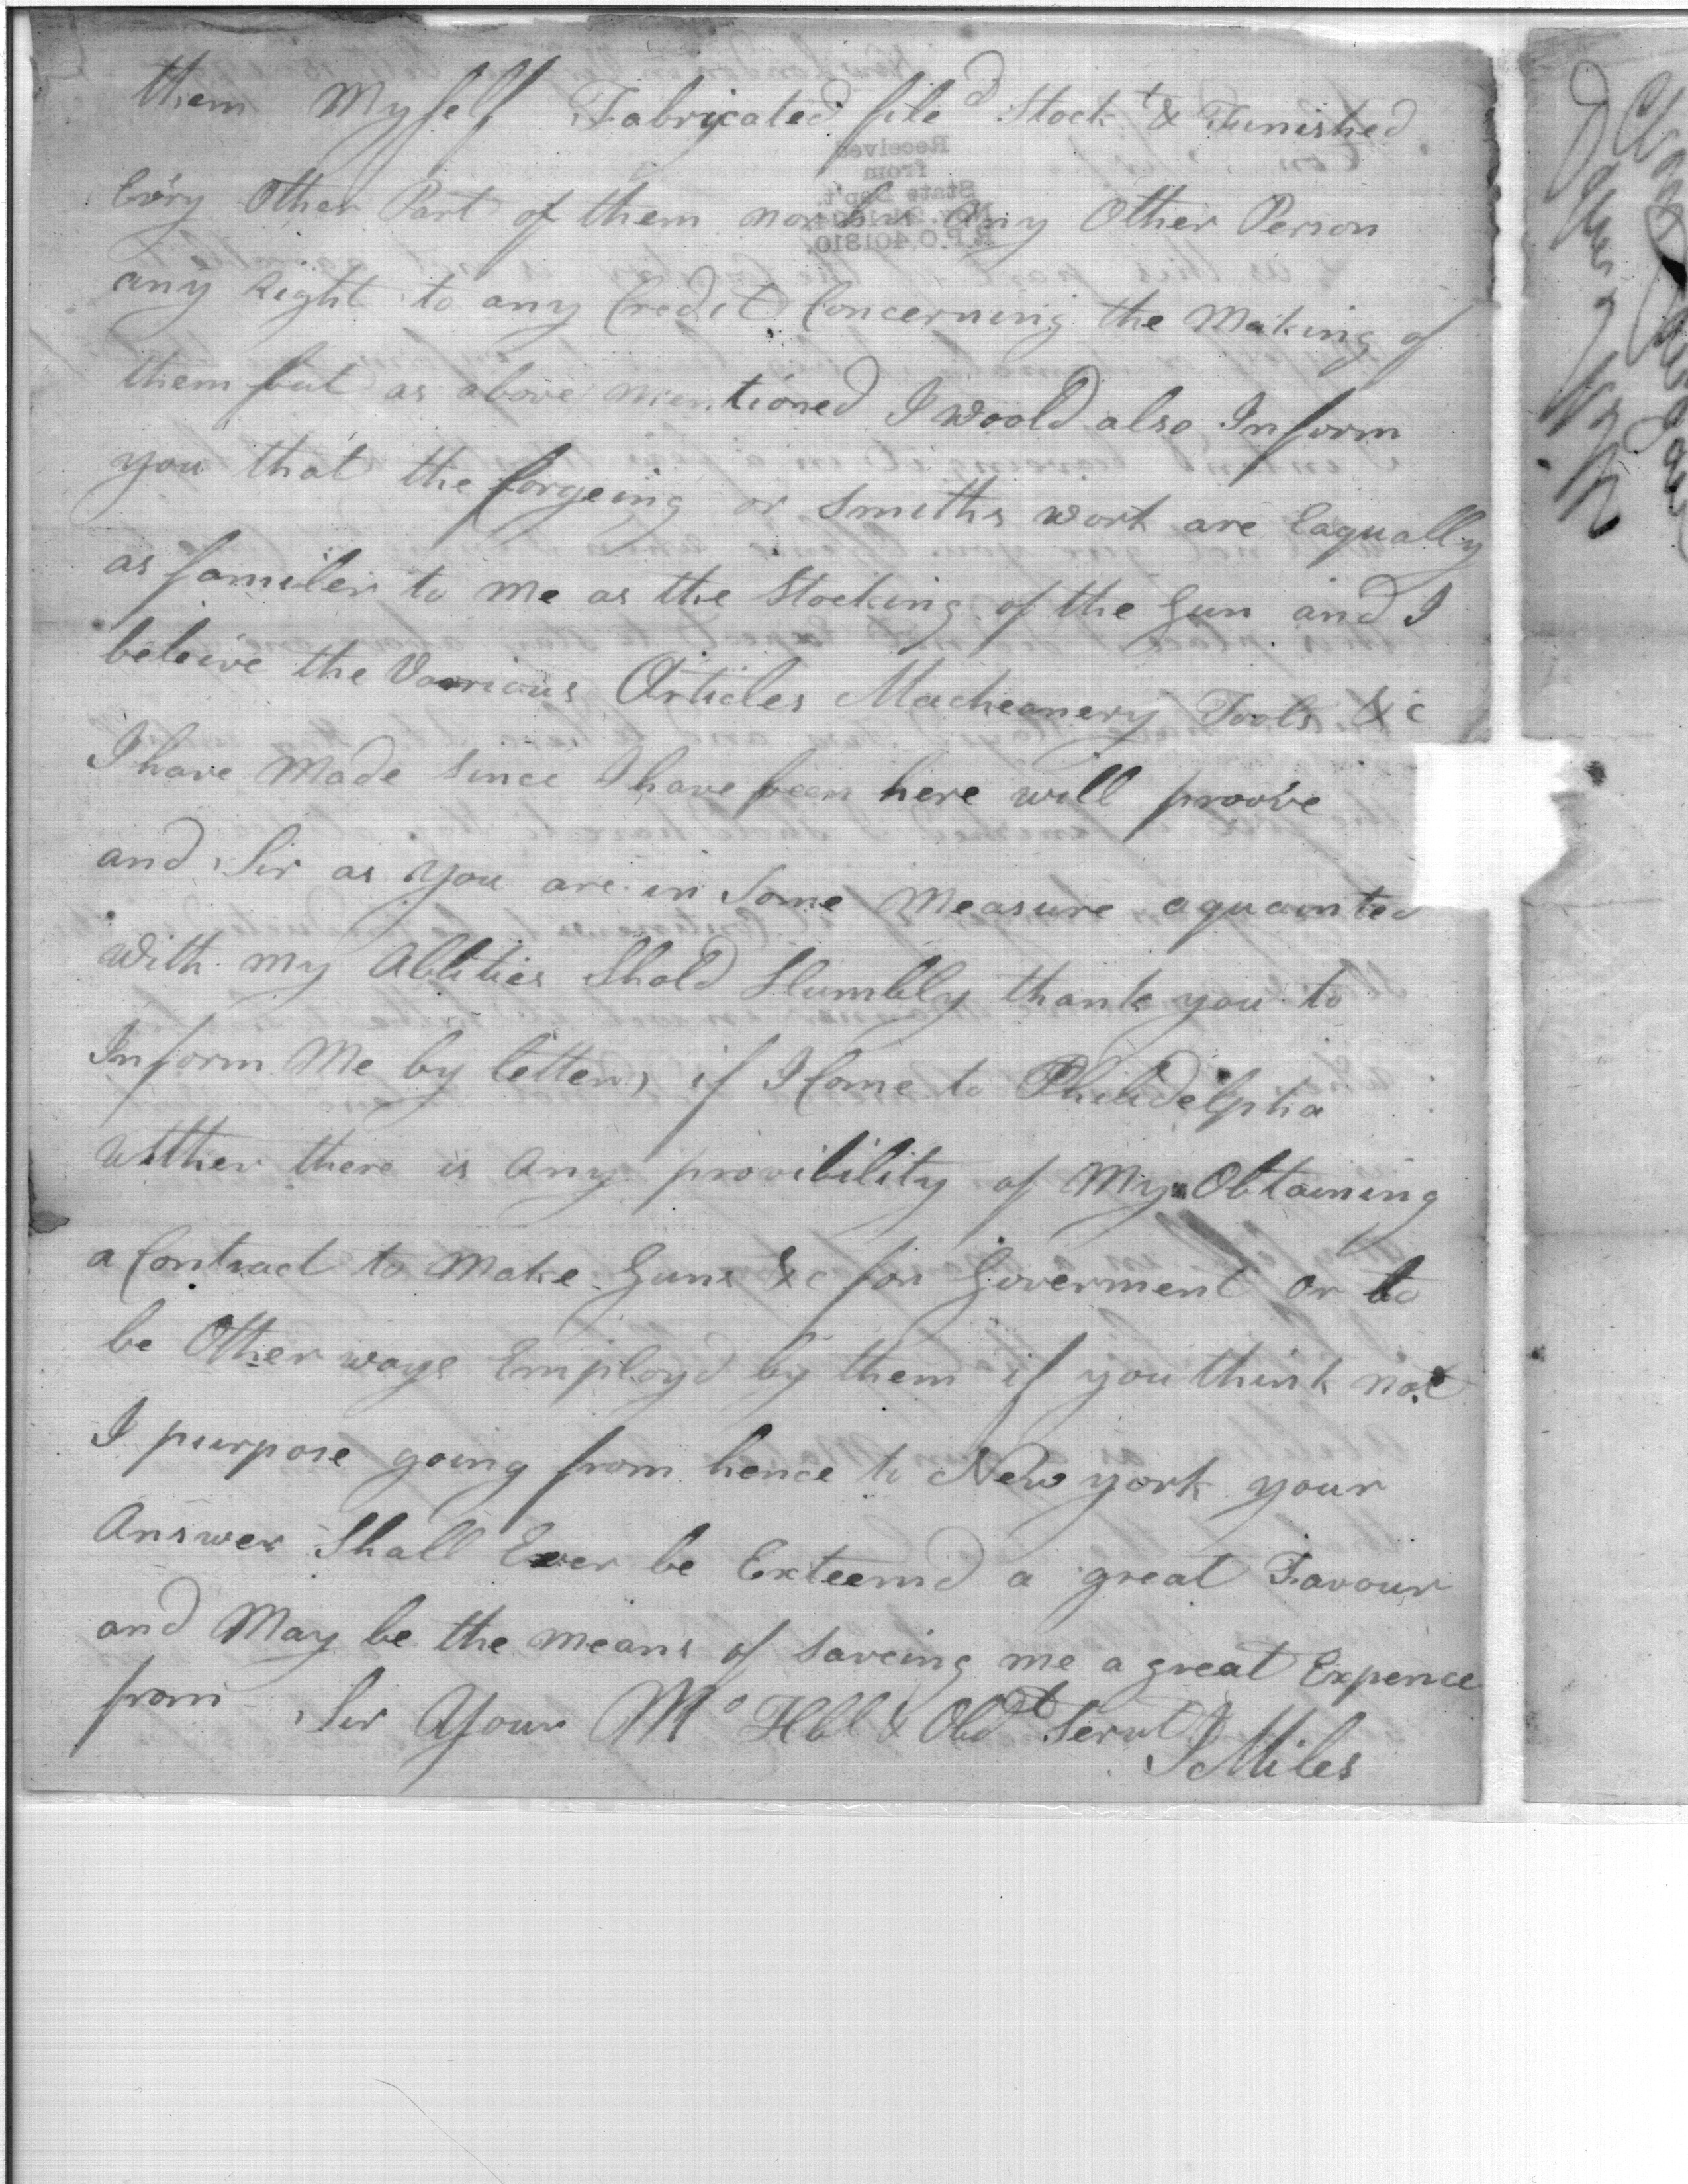 them Myself Fabricated file^d Stock^t & Funished
Ev'ry Other Part of them nor has Any Other Person
any Right to any Credit Concerning the Making of
them but as above mentioned I woold also Inform
you that the forgeing or Smiths work are Eaqually
as familer to me as the Stocking of the Gun and I
beleive the Varrious Articles Macheanery Tools &c
I have Made Since I have been here will proove
and Sir as you are in Some Measure aquainted
With my Ablities Shold Humbly thank you to
Inform Me by letter, if I Come to Philidelphia
Wither there is Any provibility of My Obtaining
a Contract to Make Guns &c for Goverment or to
be Other ways Employd by them if you think not
I purpose going from hence to New york your
Answer Shall Ever be Exteemd a great Favour
and May be the means of Saveing me a great Expence
from Sir Your M^o Hbl & Obd^t Servt
J Miles
Received
from
State Dep't.
R.P.O. 401810.